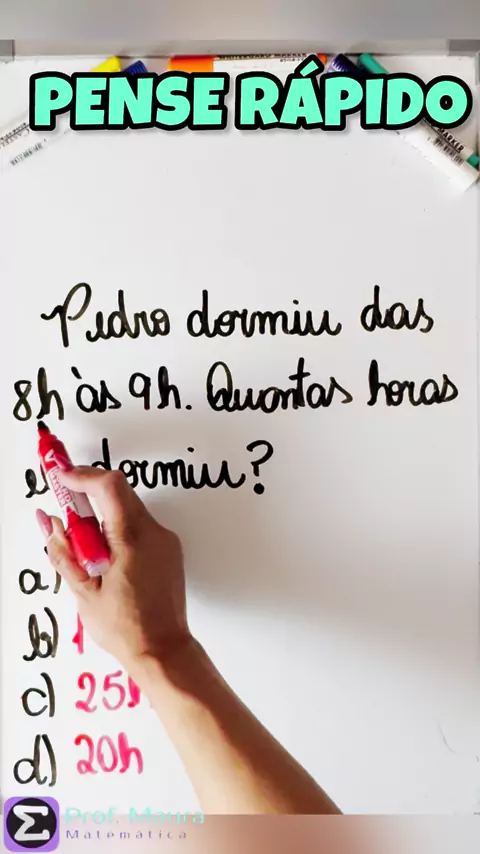 PENSE RÁPIDO
Pedro dormiu das
8h às 9h. Quantas horas
dormiu?
a)
b)
c) 25h
d) 20h
Prof. Maura
Matemática